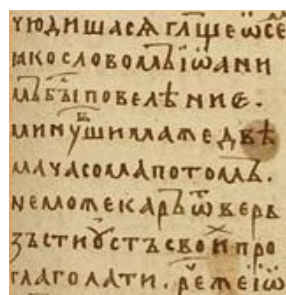 чюдишасѧ гл҃ще ѿсе
ꙗкословомъїѡани
мъбы҇повелѣниѥ.
минꙋв҇шимажедвѣ
мачасомапотомъ.
неможекарьѿверь
зъстиꙋстъсвоипро
глаголати. реч҇жеїѡ